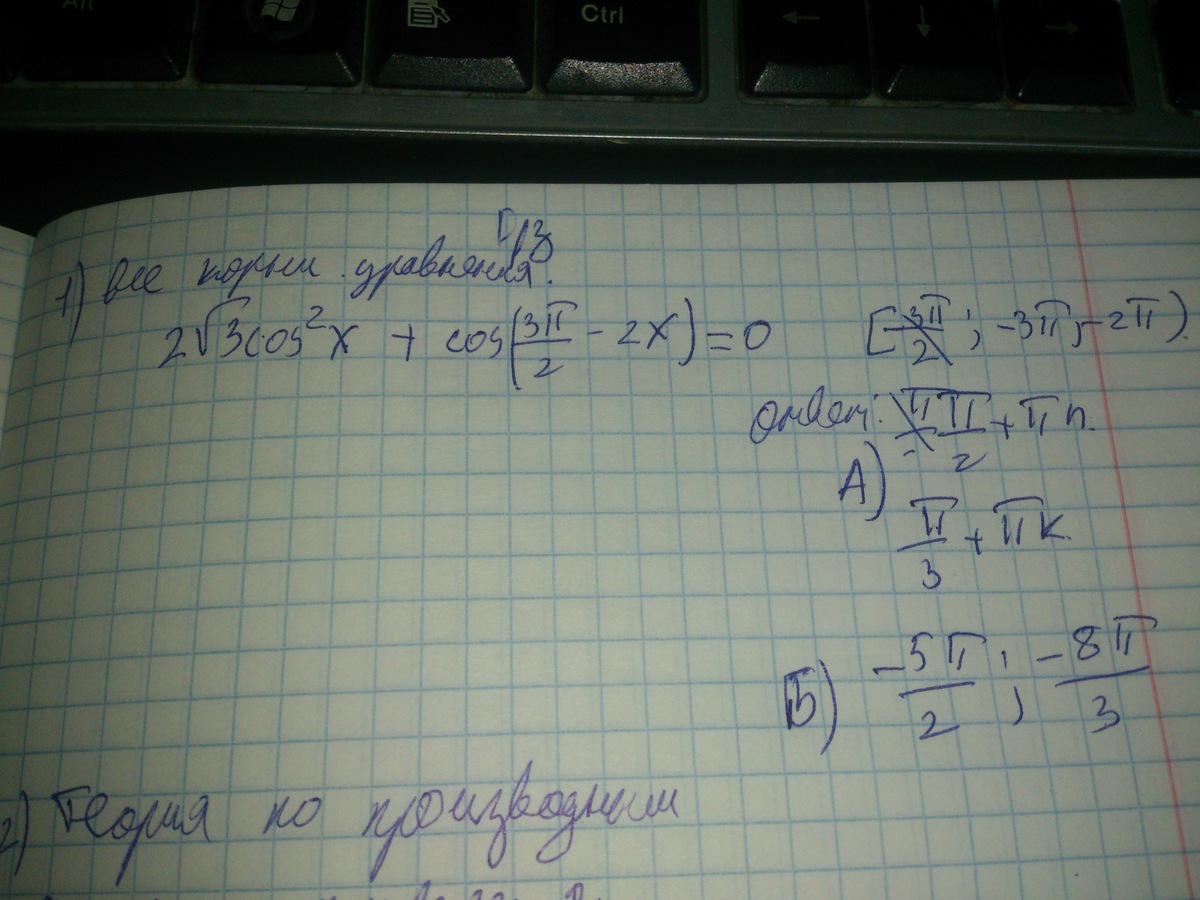 Alt
Ctrl
← ↓ →
Д/з
1) все корни уравнения.
2√3cos²x + cos(3π/2 − 2x) = 0 [3π/2; −3π; −2π).
ответ: π/2 + πn.
А)
π/3 + πk.
Б) −5π/2; −8π/3
2) Теория по производным